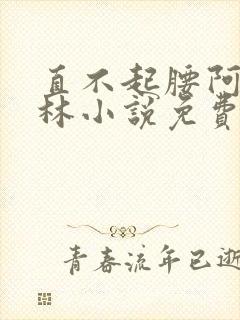 直不起腰阿
林小說免費
青春流年已逝